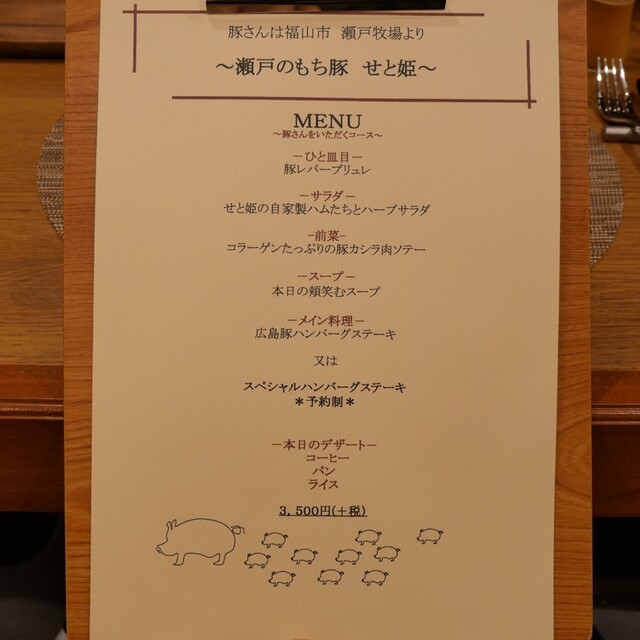 豚さんは福山市　瀬戸牧場より
～瀬戸のもち豚　せと姫～
MENU
～豚さんをいただくコース～
－ひと皿目－
豚レバーブリュレ
－サラダ－
せと姫の自家製ハムたちとハーブサラダ
-前菜-
コラーゲンたっぷりの豚カシラ肉ソテー
－スープ－
本日の頬笑むスープ
－メイン料理－
広島豚ハンバーグステーキ
又は
スペシャルハンバーグステーキ
＊予約制＊
－本日のデザート－
コーヒー
パン
ライス
3，500円(＋税)